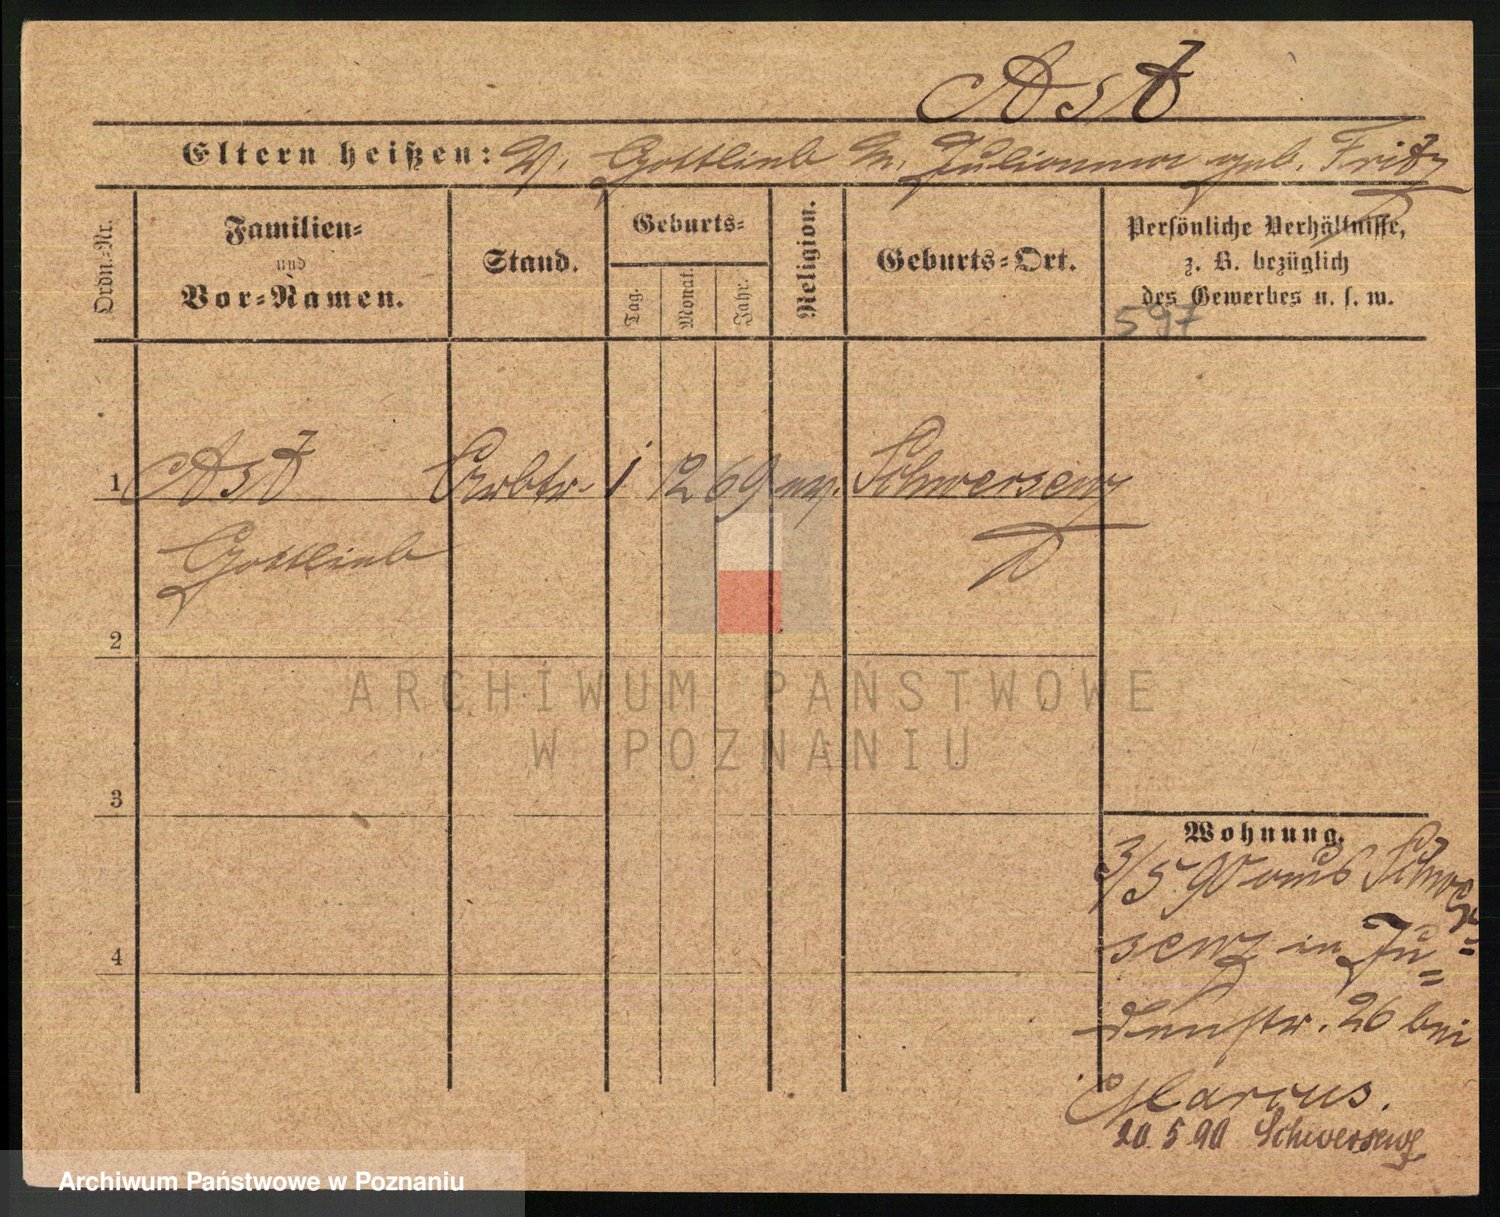 Ast
Eltern heißen: V. Gottlieb M. Julianna geb. Fritz
Ordn.-Nr.
Familien-
und
Vor-Namen.
Stand.
Geburts-
Tag.
Monat.
Jahr.
Religion.
Geburts-Ort.
Persönliche Verhältnisse,
z. B. bezüglich
des Gewerbes u. s. w.
597
1 Ast Arbtr. 1 12 69 ev. Schwersenz
Gottlieb
2
3
4
ARCHIWUM PAŃSTWOWE
W POZNANIU
Wohnung.
3/5 90 aus Schwer=
senz in Ju=
denstr. 26 bei
Marcus.
20. 5 90 Schwersenz
Archiwum Państwowe w Poznaniu